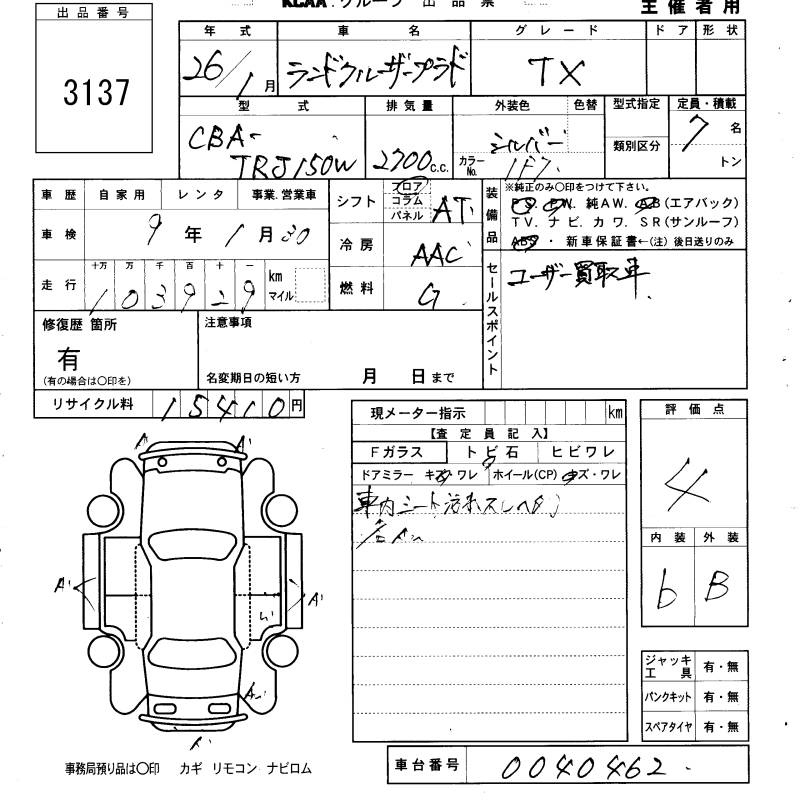 KCAA.グループ 出品票
主催者用
出品番号
3137
年式 車名 グレード ドア 形状
26/1月 ランドクルーザープラド TX
型式 排気量 外装色 色替 型式指定 定員・積載
CBA-
TRJ150W 2700c.c. シルバー 7名
カラーNo. 1F7 類別区分 トン
車歴 自家用 レンタ 事業.営業車
シフト フロア コラム パネル AT
装備品 ※純正のみ〇印をつけて下さい。
P.S. P.W. 純A.W. A.B(エアバック)
T.V. ナビ. カワ. S.R(サンルーフ)
ABS・新車保証書←(注)後日送りのみ
車検 9年1月30
冷房 AAC
走行 十万 万 千 百 十 一
103929 km マイル
燃料 G
セールスポイント ユーザー買取車
修復歴 箇所 注意事項
有
(有の場合は〇印を) 名変期日の短い方 月 日まで
リサイクル料 15410円
現メーター指示 km
【査定員記入】
Fガラス トビ石 ヒビワレ
ドアミラー キズ・ワレ ホイール(CP) キズ・ワレ
車内シート汚れスレヘタリ
評価点
4
内装 外装
b B
A'
A'
A'
A'
A'
ジャッキ工具 有・無
パンクキット 有・無
スペアタイヤ 有・無
事務局預り品は〇印 カギ リモコン ナビロム
車台番号 0040462